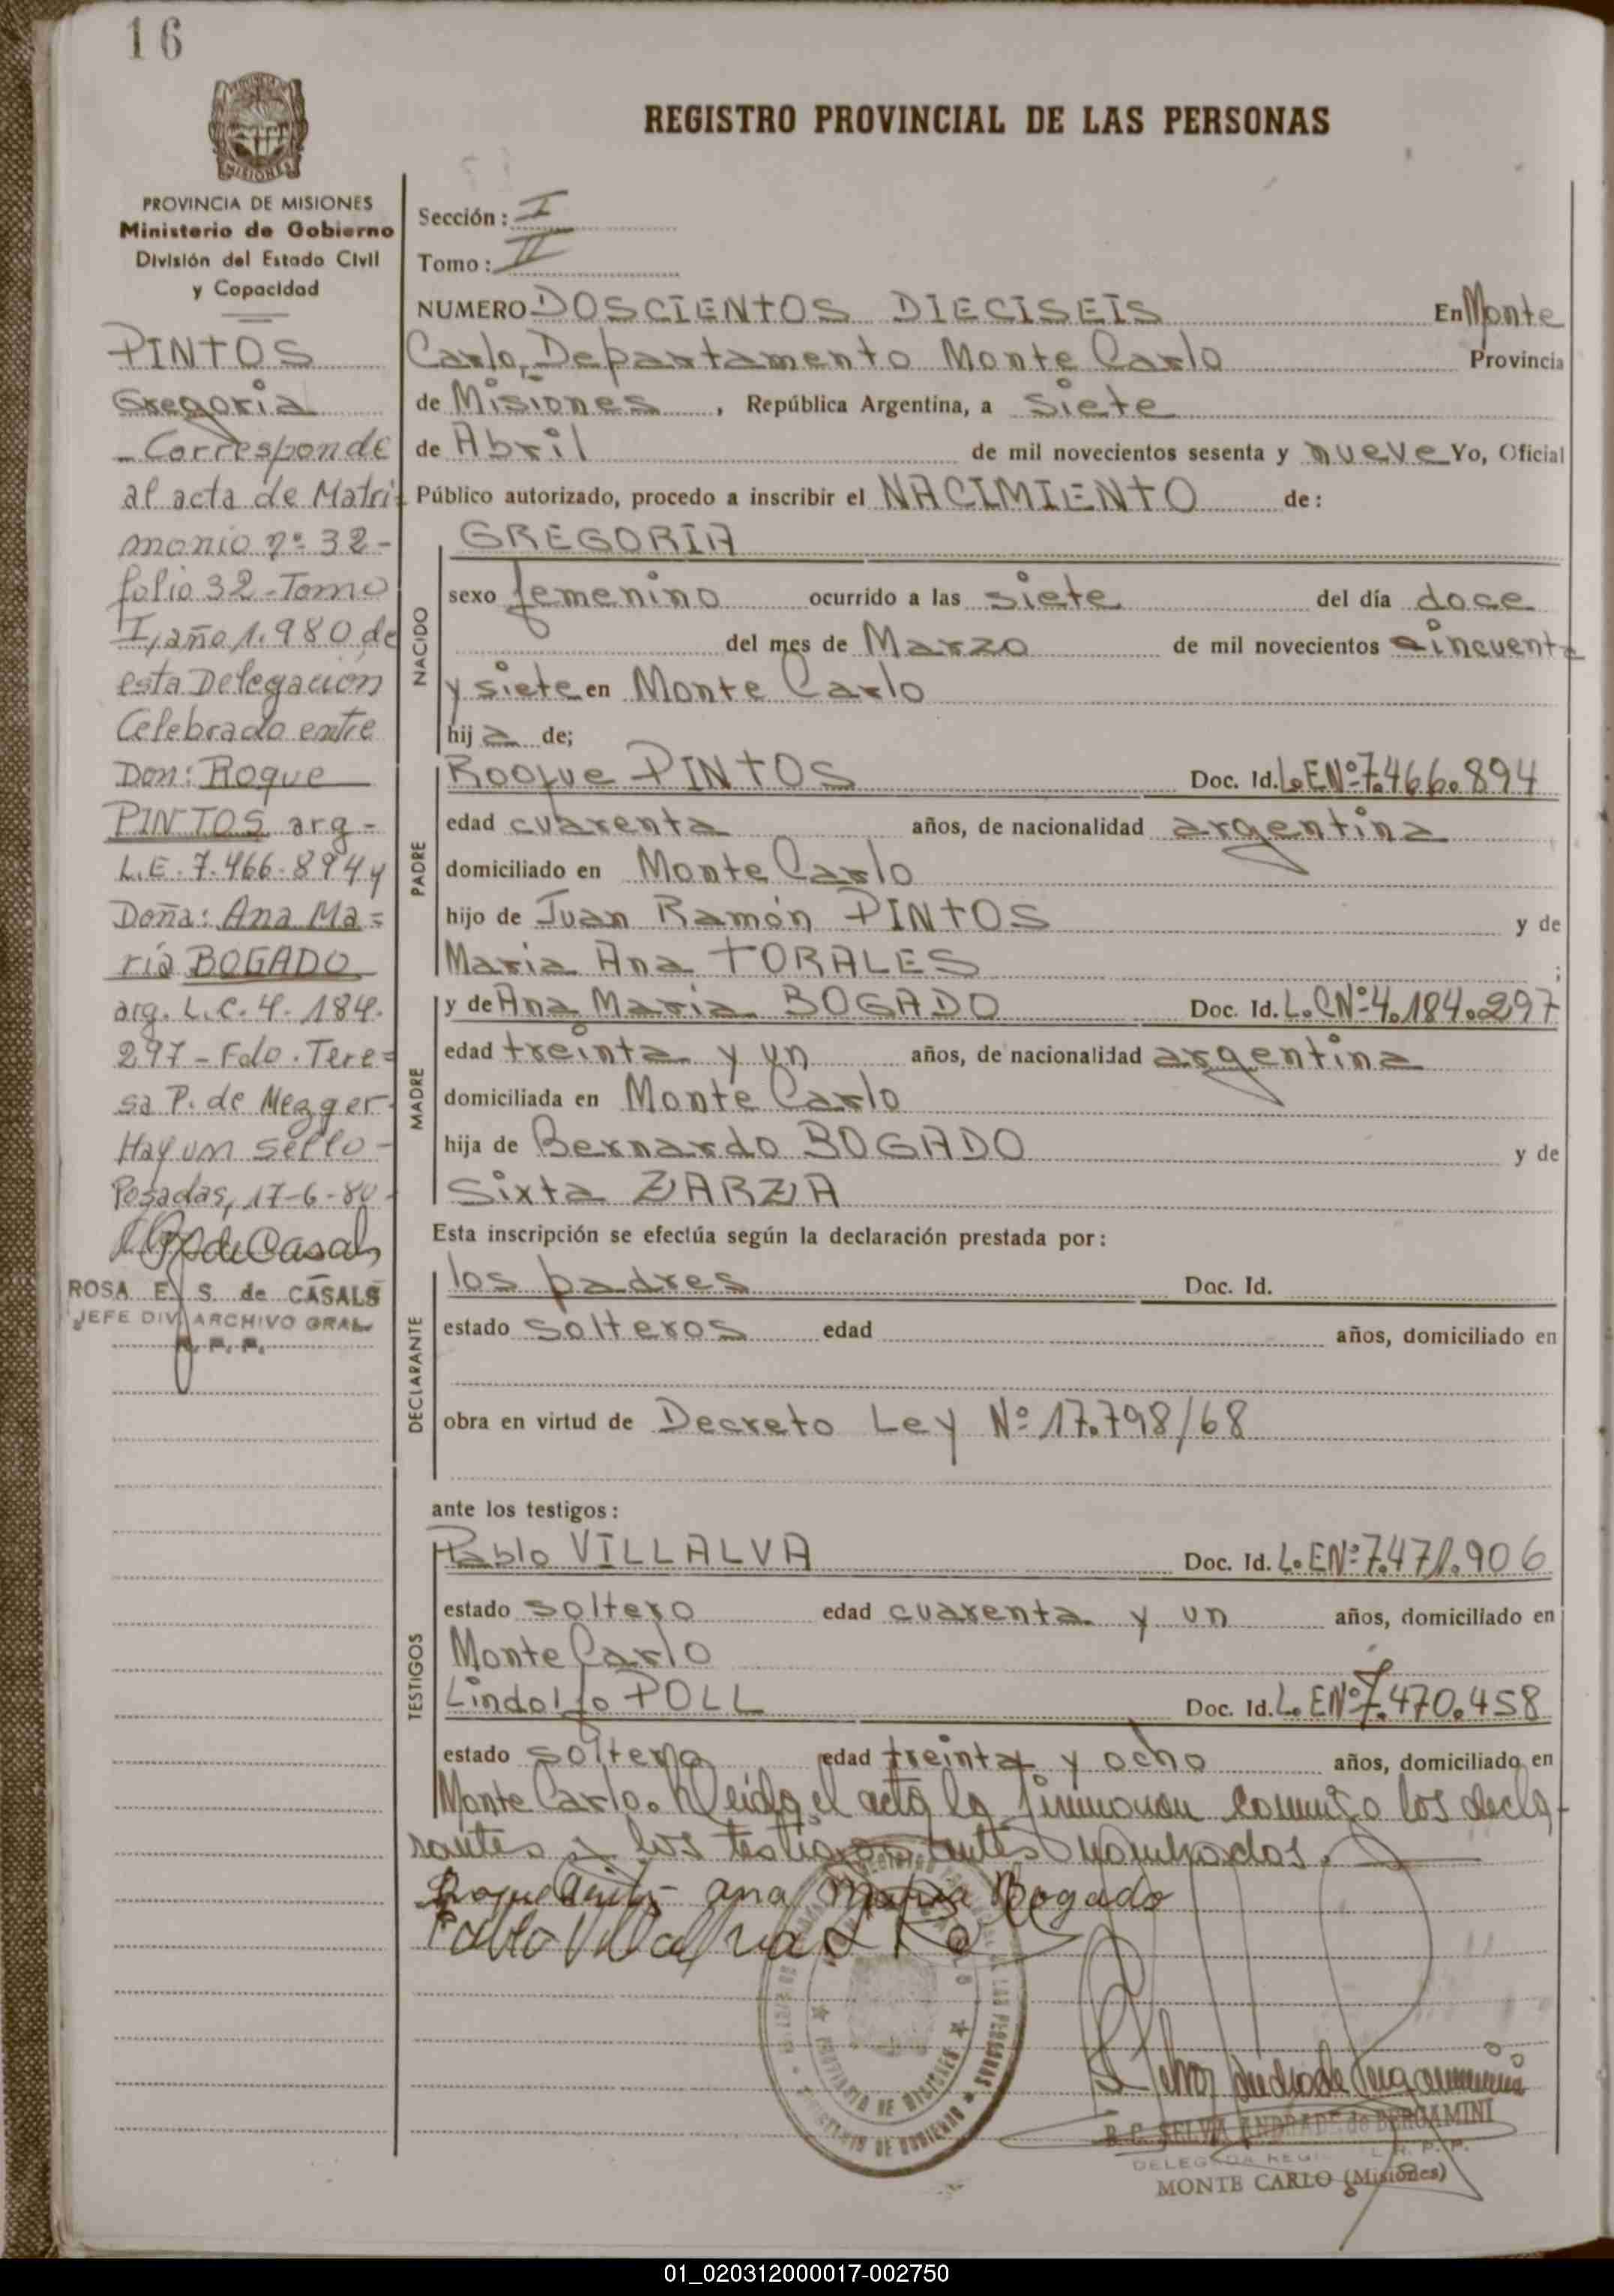 16
PROVINCIA DE MISIONES
Ministerio de Gobierno
División del Estado Civil
y Capacidad
PINTOS
Gregoria
- Corresponde
al acta de Matri-
monio nº 32-
folio 32-Tomo
I, año 1.980 de
esta Delegación
Celebrado entre
Don: Roque
PINTOS arg-
L.E. 7.466.894 y
Doña: Ana Ma=
ría BOGADO
arg. L.C. 4.184.
297 - Fdo. Tere=
sa P. de Mezger-
Hay un sello-
Posadas, 17-6-80-
ROSA E. S. de CASALS
JEFE DIV. ARCHIVO GRAL.
R. P. P.
REGISTRO PROVINCIAL DE LAS PERSONAS
Sección: I
Tomo: II
NUMERO DOSCIENTOS DIECISEIS En Monte
Carlo, Departamento Monte Carlo Provincia
de Misiones, República Argentina, a siete
de Abril de mil novecientos sesenta y nueve Yo, Oficial
Público autorizado, procedo a inscribir el NACIMIENTO de:
NACIDO
GREGORIA
sexo femenino ocurrido a las siete del día doce
del mes de Marzo de mil novecientos cincuenta
y siete en Monte Carlo
hija de;
PADRE
Rooque PINTOS Doc. Id. L.E Nº 7.466.894
edad cuarenta años, de nacionalidad argentina
domiciliado en Monte Carlo
hijo de Juan Ramón PINTOS y de
Maria Ana TORALES ;
MADRE
y de Ana Maria BOGADO Doc. Id. L.C Nº 4.184.297
edad treinta y un años, de nacionalidad argentina
domiciliada en Monte Carlo
hija de Bernardo BOGADO y de
Sixta ZARZA
Esta inscripción se efectúa según la declaración prestada por:
DECLARANTE
los padres Doc. Id.
estado solteros edad años, domiciliado en
obra en virtud de Decreto Ley Nº 17.798/68
ante los testigos:
TESTIGOS
Pablo VILLALVA Doc. Id. L.E Nº 7.471.906
estado soltero edad cuarenta y un años, domiciliado en
Monte Carlo
Lindolfo POLL Doc. Id. L.E Nº 7.470.458
estado soltero edad treinta y ocho años, domiciliado en
Monte Carlo. leida el acta la firmaron conmigo los decla-
rantes y los testigos antes nombrados.
Ana Maria Bogado
Pablo Villalva
PROVINCIA DE MISIONES
MINISTERIO DE GOBIERNO
B. C. SELVA ANDRADE de BERGAMINI
MONTE CARLO (Misiones)
01_020312000017-002750